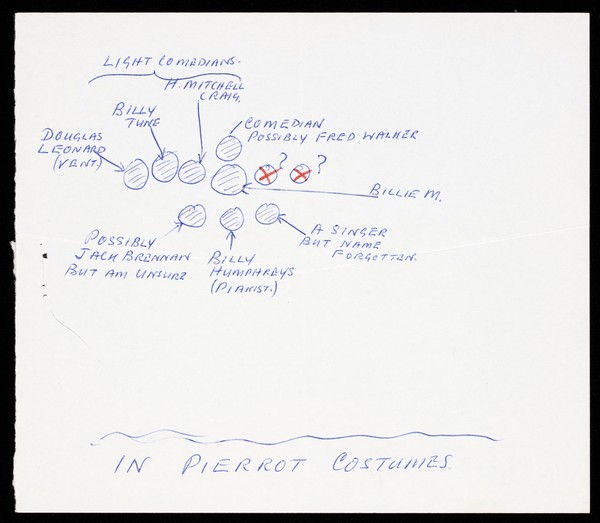 LIGHT COMEDIANS.
H. MITCHELL
CRAIG.
BILLY
TUNE
COMEDIAN
POSSIBLY FRED WALKER
DOUGLAS
LEONARD
(VENT)
? ?
BILLIE M.
POSSIBLY
JACK BRENNAN
BUT AM UNSURE
BILLY
HUMPHREYS
(PIANIST.)
A SINGER
BUT NAME
FORGOTTEN.
IN PIERROT COSTUMES.